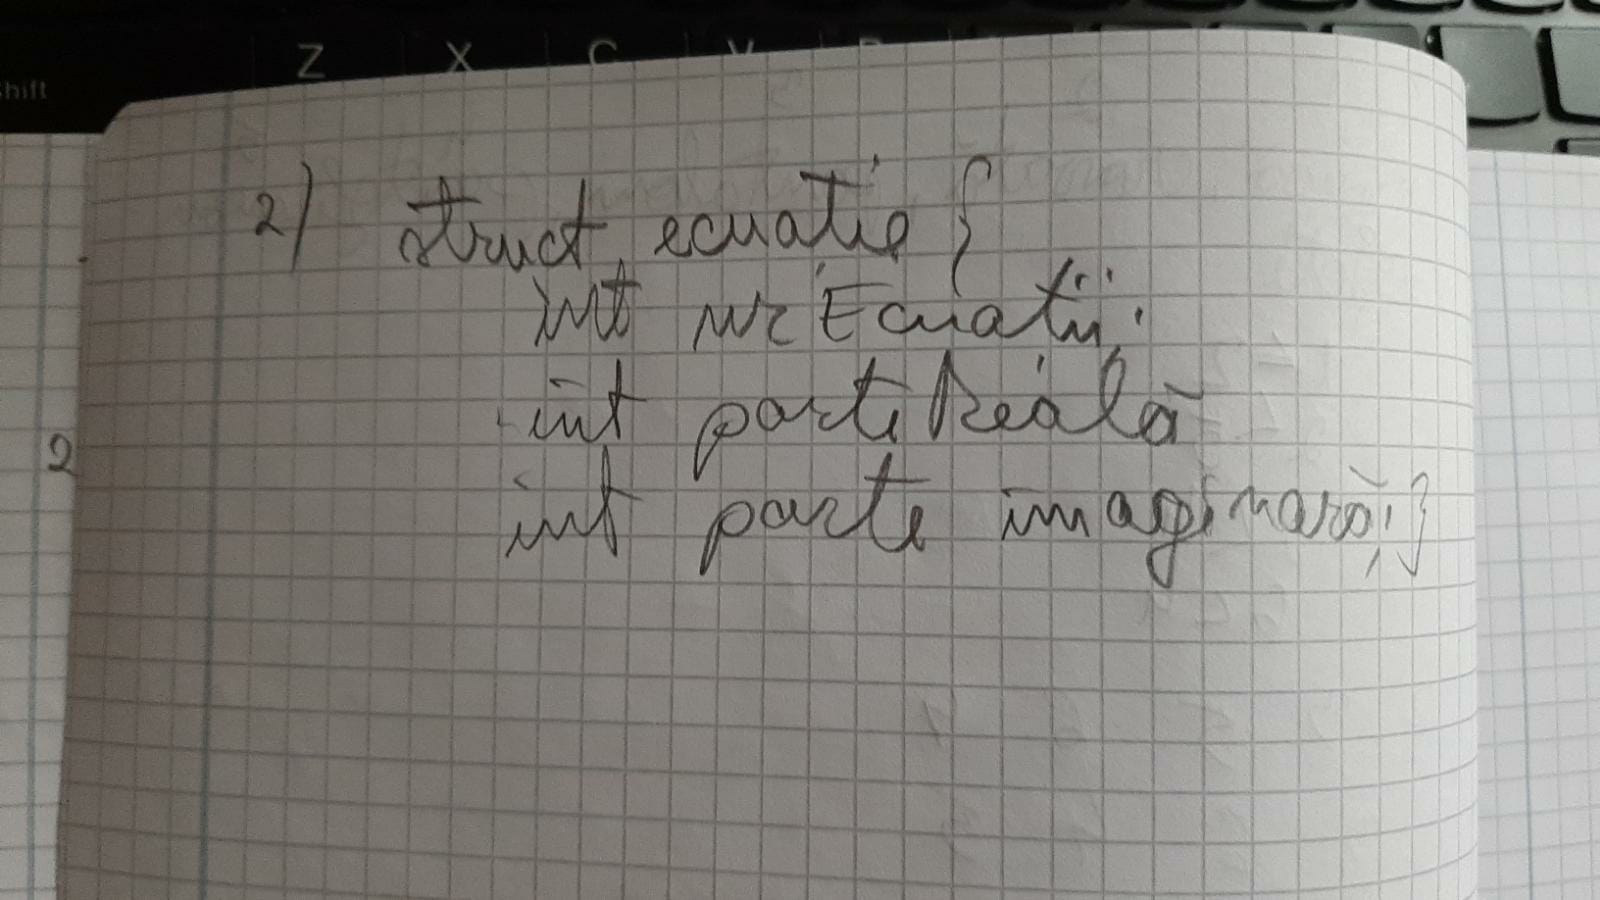 Z X C V B
Shift
2) struct ecuatie {
int nrEcuatii;
int parteReală
int parte imaginară; }
2